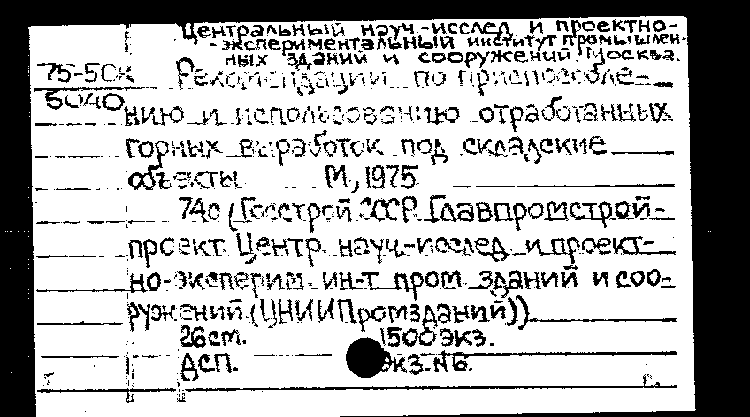 Центральный науч-исслед и проектно-
-экспериментальный институт промышлен-
ных зданий и сооружений. Москва.
75-50к Рекомендации по приспособле-
5040 нию и использованию отработанных
горных выработок под складские
объекты М, 1975
74с (Госстрой СССР. Главпромстрой-
проект. Центр. науч.-исслед. и проект-
но-эксперим. ин-т пром зданий и соо-
ружений (ЦНИИПромзданий))
26см. 1500экз.
ДСП. экз.№6.